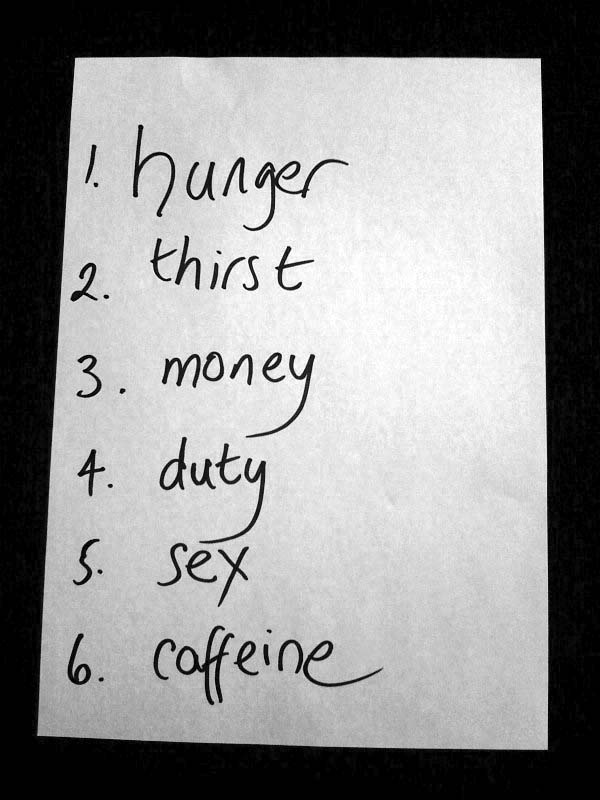 1. hunger
2. thirst
3. money
4. duty
5. sex
6. caffeine